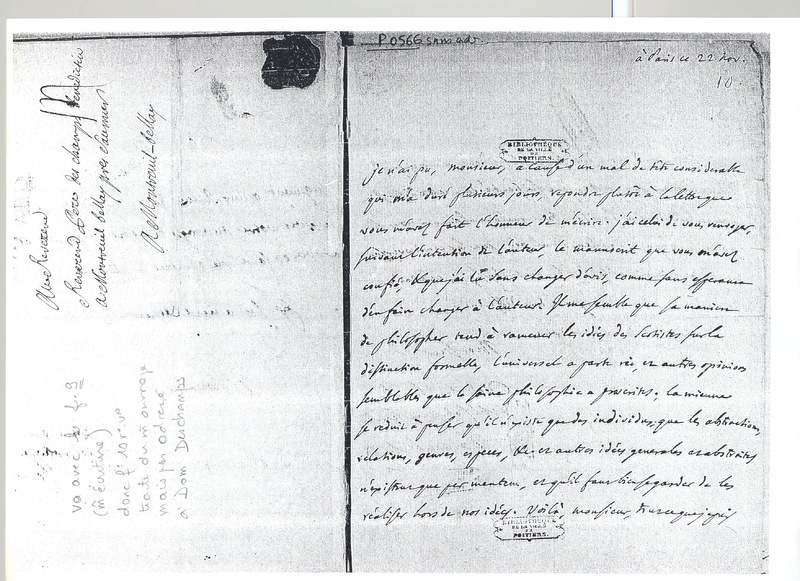 Au Reverend
Reverend Pere des champs Benedictin
a Montreuil bellay pres Saumur
A Montreuil bellay
va avec le f. 9
(même encre)
donc f. 10 r. vo
traite du m ouvrage
mais pas adressé
à Dom Deschamps
P0566
à Paris ce 22 nov.
10.
BIBLIOTHÈQUE
DE LA VILLE
DE
POITIERS.
je n'ai pu, monsieur, a cause d'un mal de tête considerable
qui m'a duré plusieurs jours, repondre plutôt à la lettre que
vous m'avez fait l'honneur de m'écrire. j'ai celui de vous renvoyer,
suivant l'intention de l'auteur, le manuscrit que vous m'avez
confié, & que j'ai lû sans changer d'avis, comme sans esperance
d'en faire changer à l'auteur. Il me semble que sa maniere
de philosopher tend à ramener les idées des Scotistes sur la
distinction formelle, l'universel a parte rei, et autres opinions
semblables que la saine philosophie a proscrites. la mienne
se reduit à penser qu'il n'existe que des individus, que les abstractions,
relations, genres, especes, &c. et autres idées generales et abstraites
n'existent que par mentem, et qu'il faut bien se garder de les
réaliser hors de nos idées. Voilà, monsieur, tout ce que je puis
BIBLIOTHÈQUE
DE LA VILLE
DE
POITIERS.